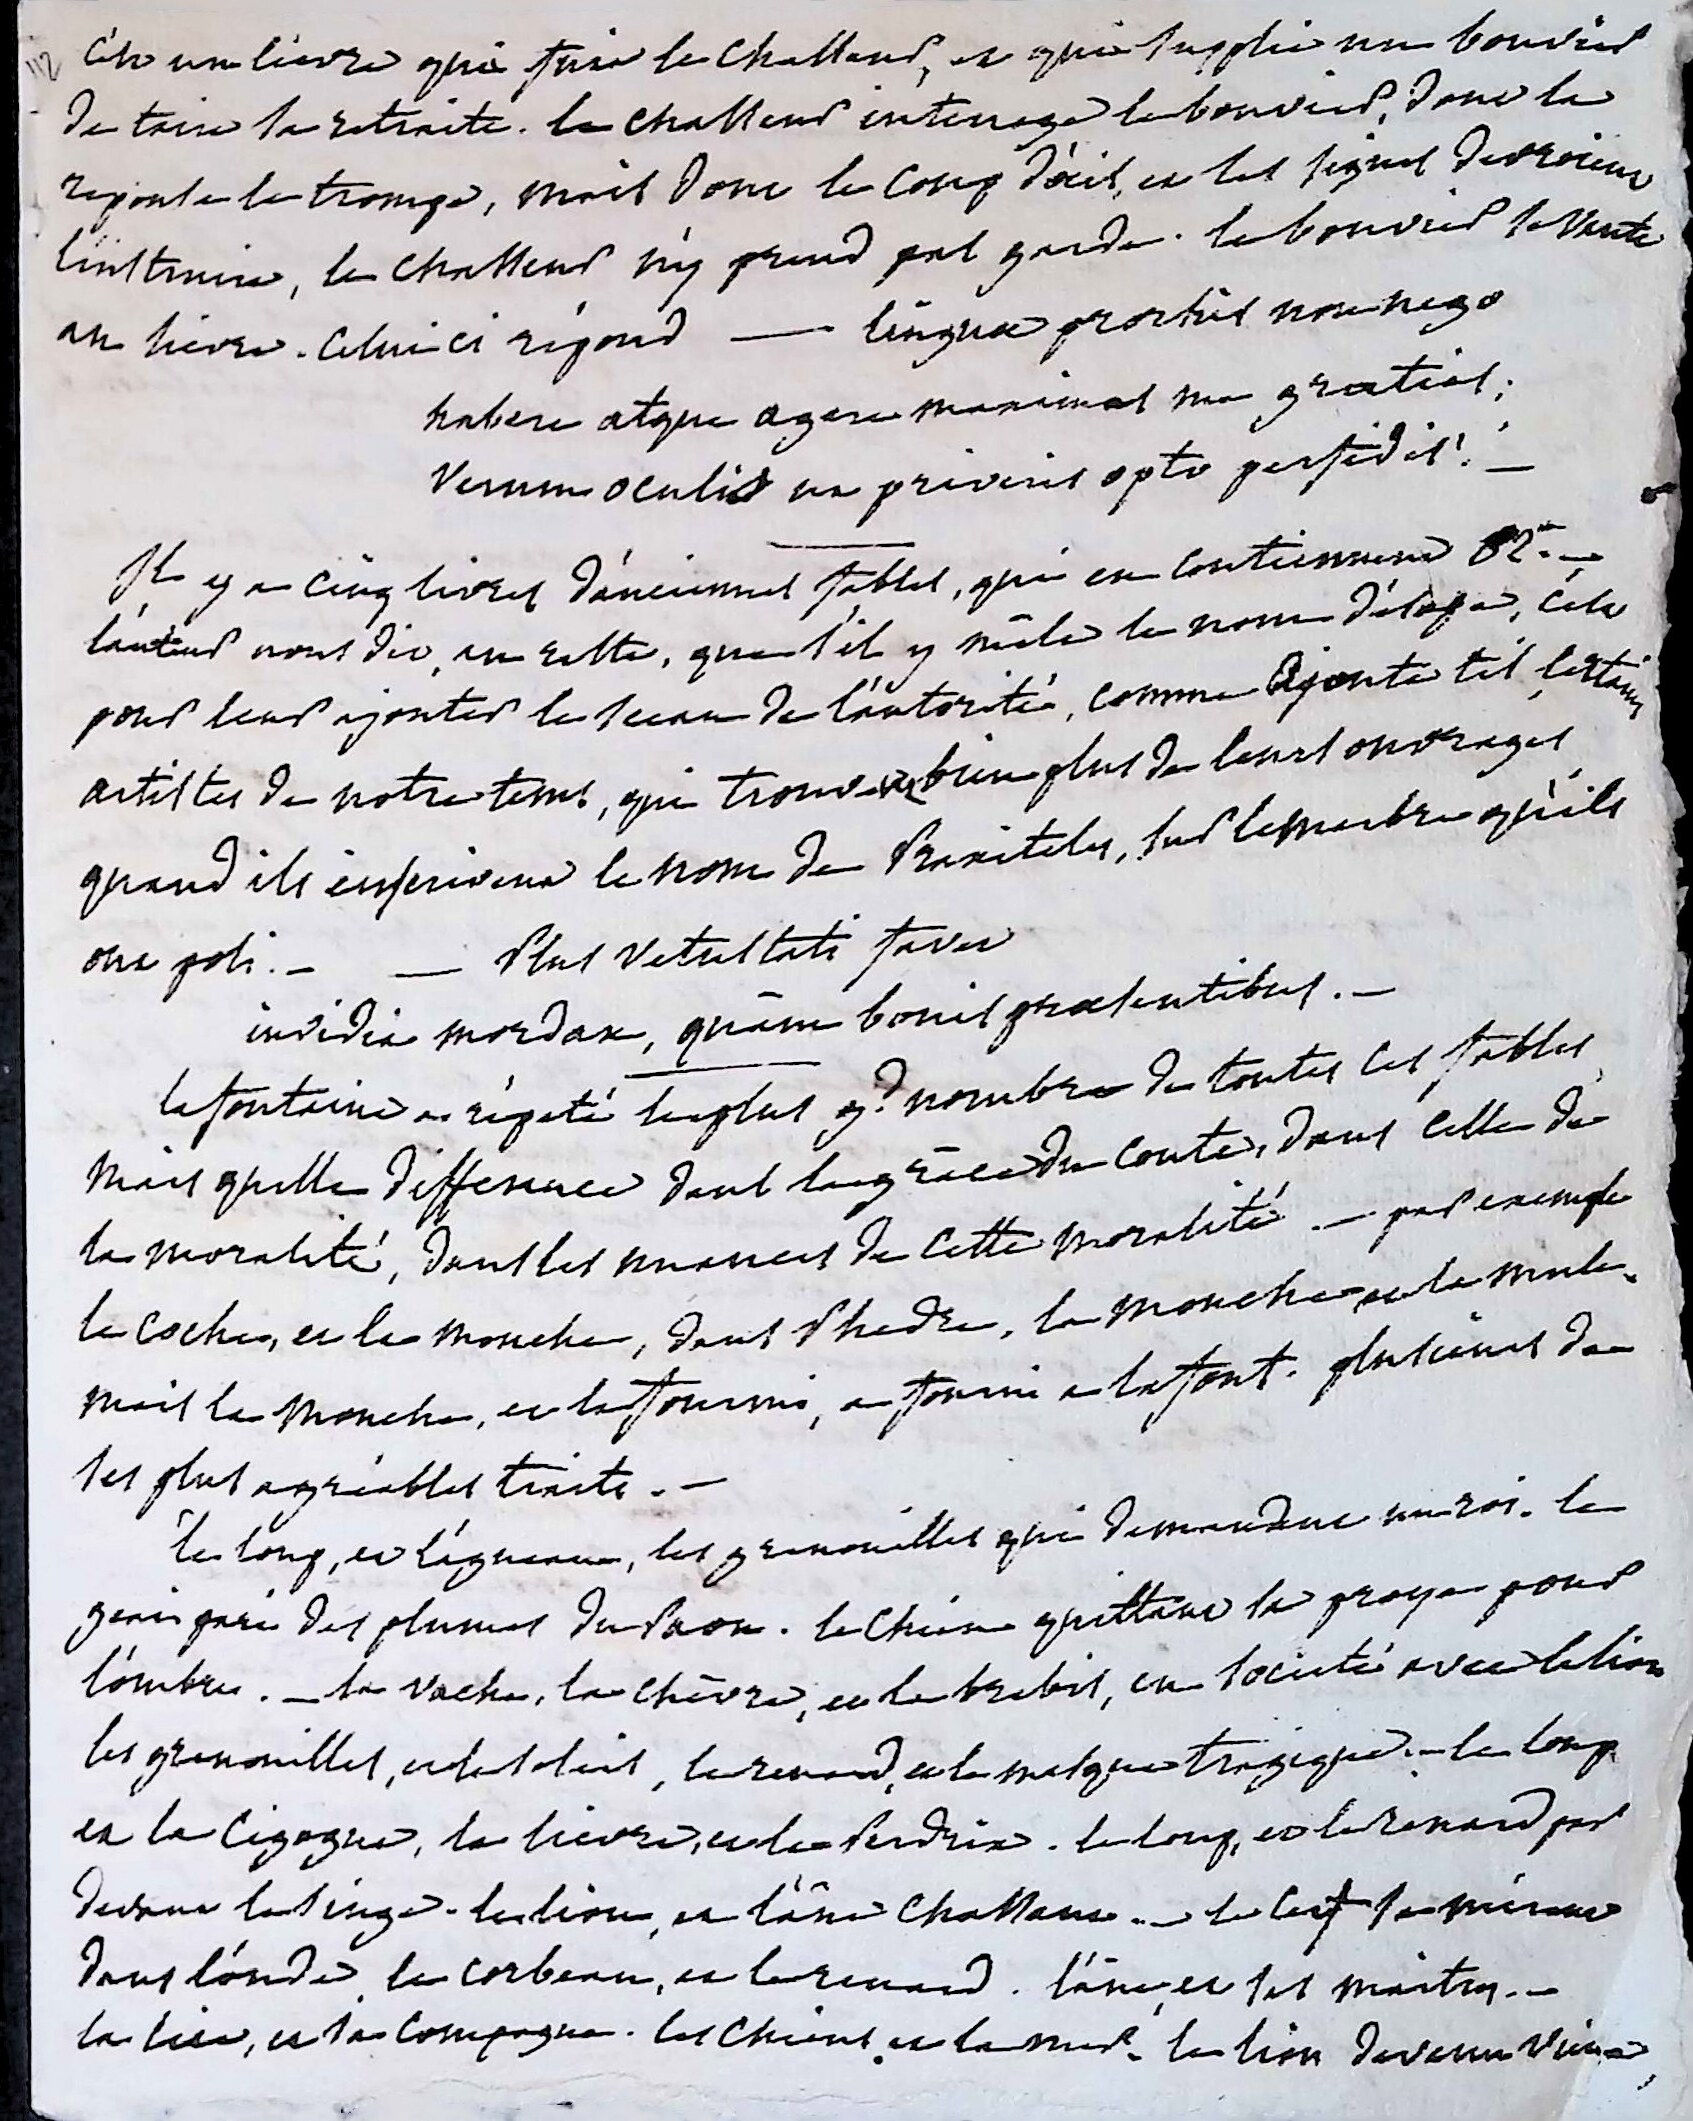 112 c'est un lievre qui fuit le chasseur, et qui supplie un bouvier
de taire sa retraite. le chasseur interroge le bouvier, dont la
reponse le trompe, mais dont le coup d'œil, et les signes devroient
l'instruire, le chasseur n'y prend pas garde. le bouvier se vante
au lievre. celui ci répond — linguæ prorsus non nego
habere atque agere maximas me gratias;
verum oculis ut priveris opto perfidis. —
Il y a cinq livres d'anciennes fables, qui en contiennent 82. —
l'auteur nous dit, au reste, que s'il y mêle le nom d'ésope, c'est
pour leur ajouter le sceau de l'autorité, comme ajoute t'il certains
artistes de notre tems, qui trouvent bien plus de leurs ouvrages
quand ils inscrivent le nom de Praxiteles, sur le marbre qu'ils
ont poli. — — Plus vetustati favet
invidia mordax, quàm bonis præsentibus. —
lafontaine a répété le plus gd nombre de toutes ces fables,
mais quelle difference dans la grâce du conte, dans celle de
la moralité, dans les nuances de cette moralité. — par exemple
le coche, et la mouche, dans Phedre, la mouche et la mule.
mais la mouche, et la fourmi, a fourni a lafont. plusieurs de
ses plus agréables traits. —
le loup, et l'agneau, les grenouilles qui demandent un roi. le
geai paré des plumes du Paon. le chien quittant la proye pour
l'ombre. — la vache, la chèvre, et la brebis, en societé avec le lion
les grenouilles, et le soleil, le renard, et le masque tragique. — le loup
et la cigogne, le lievre, et la Perdrix. le loup, et le renard par
devant le singe. le lion, et l'âne chassant. — le cerf se mirant
dans l'onde, le corbeau, et le renard. l'âne, et ses maitres. —
la lice, et sa compagne. les chiens, et la mer. le lion devenu vieux,